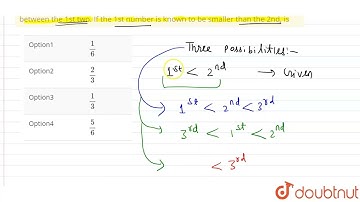 between the 1st two. If the 1st number is known to be smaller than the 2nd, is
Option1 1/6
Option2 2/3
Option3 1/3
Option4 5/6
Three possibilities:-
1st < 2nd → Given
1st < 2nd < 3rd
3rd < 1st < 2nd
< 3rd
doubtnut